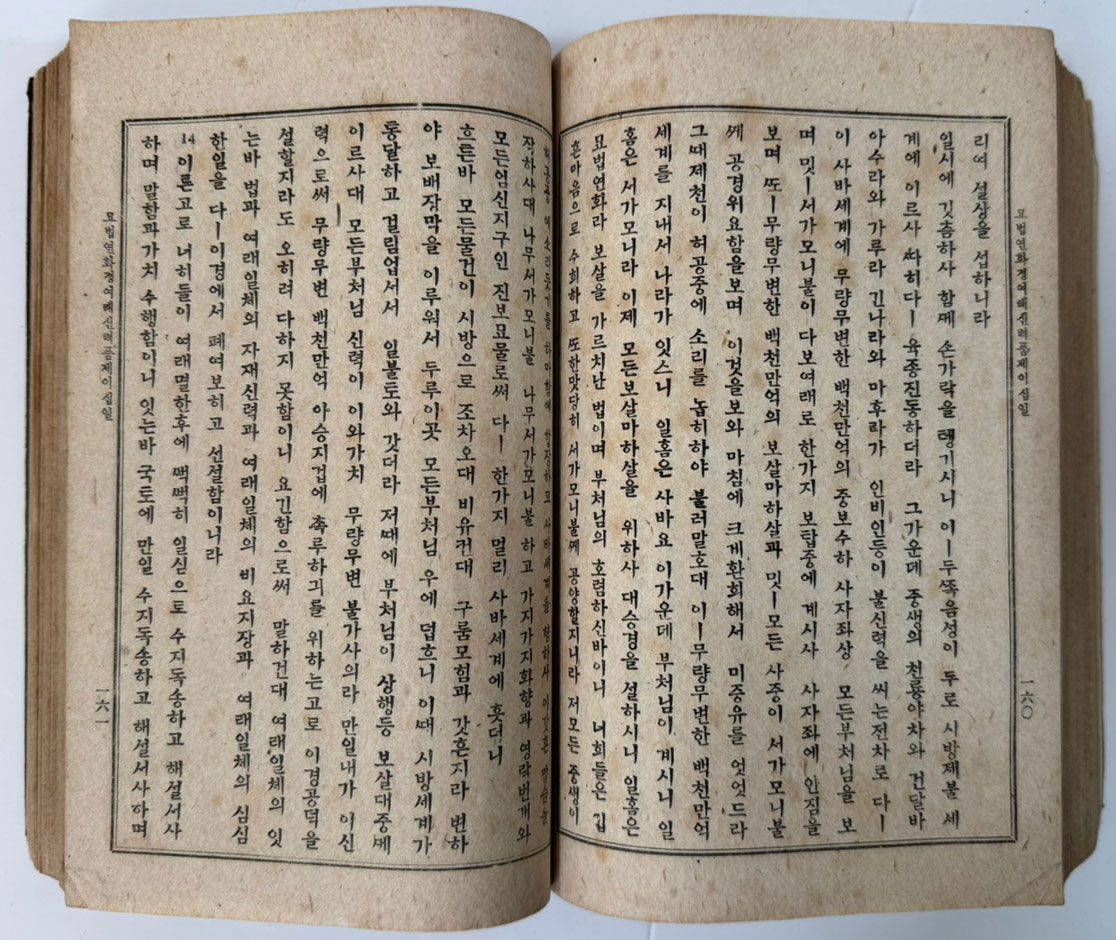 묘법연화경여래신력품제이십일
一六〇
리여 설상을 섭하니라
일시에 깃츰하사 함께 손가락을 텡기시니 이ㅣ두ᄶᅩᆨ음성이 두로 시방제불 세
계에 이르사 ᄯᅡ히다ㅣ육종진동하더라 그가운데 중생의 천룡야차와 건달바
아수라와 가루라 긴나라와 마후라가 인비인등이 불신력을 ᄡᅵ는전차로 다ㅣ
이 사바세계에 무량무변한 백천만억의 중보수하 사자좌상 모든부처님을 보
며 밋ㅣ서가모니불이 다보여래로 한가지 보탑중에 계시사 사자좌에 안짐을
보며 ᄯᅩㅣ무량무변한 백천만억의 보살마하살과 밋ㅣ모든 사중이 서가모니불
ᄭᅦ 공경위요함을보며 이것을보와 마침에 크게환희해서 미증유를 엇엇드라
그ᄯᅢ제천이 허공중에 소리를 놉히하야 불러말호대 이ㅣ무량무변한 백천만억
세계를 지내서 나라가 잇스니 일홈은 사바요 이가운데 부처님이 계시니 일
홈은 서가모니라 이제 모든보살마하살을 위하사 대승경을 설하시니 일홈은
묘법연화라 보살을 가르치난 법이며 부처님의 호렴하신바이니 너희들은 깁
흔마음으로 수희하고 ᄯᅩ한맛당히 서가모니불ᄭᅦ 공양할지니라 저모든 중생이
사바세계를 향하사
장하사대 나무서가모니불 나무서가모니불 하고 가지가지화향과 영락번개와
모든엄신지구인 진보묘물로써 다ㅣ 한가지 멀리 사바세계에 흣더니
흐튼바 모든물건이 시방으로 조차오대 비유컨대 구룸모힘과 갓흔지라 변하
야 보배장막을 이루워서 두루이곳 모든부처님 우에 덥흐니 이ᄯᅢ 시방세계가
통달하고 걸림업서서 일불토와 갓더라 저ᄯᅢ에 부처님이 상행등 보살대중ᄭᅦ
이르사대 모든부처님 신력이 이와가치 무량무변 불가사의라 만일내가 이신
력으로써 무량무변 백천만억 아승지겁에 촉루하긔를 위하는고로 이경공덕을
설할지라도 오히려 다하지 못함이니 요긴함으로써 말하건대 여래일체의 잇
는바 법과 여래일체의 자재신력과 여래일체의 비요지장과 여래일체의 심심
한일을 다ㅣ이경에서 펴여보히고 선설함이니라
14 이른고로 너히들이 여래멸한후에 ᄶᅢᆨᄶᅢᆨ히 일심으로 수지독송하고 해설서사
하며 말함과가치 수행함이니 잇는바 국토에 만일 수지독송하고 해설서사하며
묘법연화경여래신력품제이십일
一六一